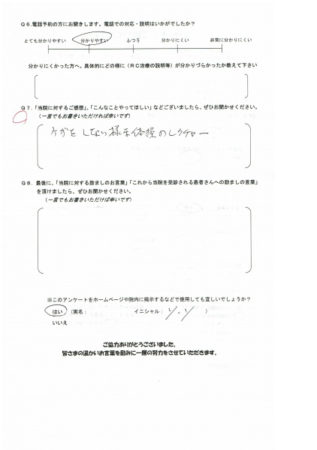 Q6.電話予約の方にお聞きします。電話での対応・説明はいかがでしたか？
とても分かりやすい 分かりやすい ふつう 分かりにくい 非常に分かりにくい
分かりにくかった方へ。具体的にどの様に（ＲＣ治療の説明等）が分かりづらかったか教えて下さい
Q7.「当院に対するご感想」、「こんなことやってほしい」などございましたら、ぜひお聞かせください。
（一言でもお書きいただければ幸いです）
ケガをしない様な体操のレクチャー
Q8. 最後に、「当院に対する励ましのお言葉」「これから当院を受診される患者さんへの励ましの言葉」
を頂けましたら、ぜひお聞かせください。
（一言でもお書きいただけば幸いです）
※このアンケートをホームページや院内に掲示するなどで使用しても宜しいでしょうか？
はい （実名： イニシャル： ）
いいえ
ご協力ありがとうございました。
皆さまの温かいお言葉を励みに一層の努力をさせていただきます。